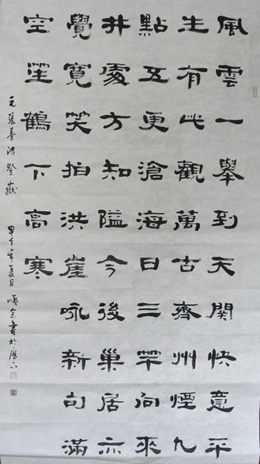 風雲一舉到天關快意平
生有此觀萬古齊州煙九
點五更滄海日三竿向來
井處方知隘今後巢居亦
覺寬笑拍洪崖咏新句滿
空笙鶴下高寒
元張養浩詩登嶽 甲午年夏月順書於